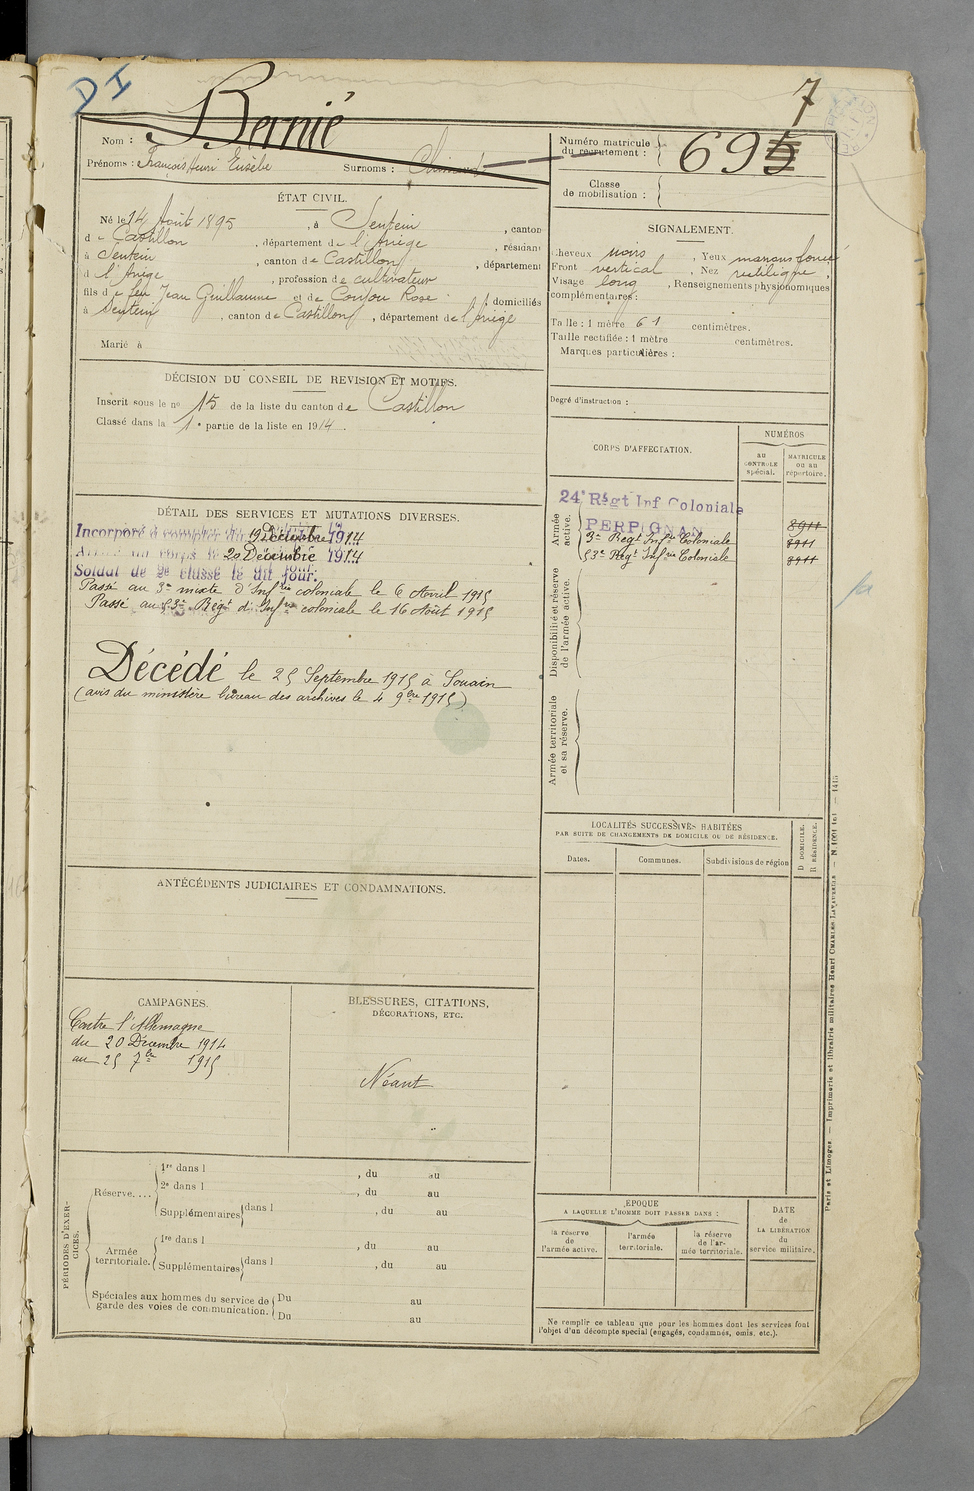 DI
7
Nom : Bernié
Prénoms : François Henri Eusèbe Surnoms :
Numéro matricule
du recrutement : 695
Classe
de mobilisation :
ÉTAT CIVIL.
Né le 14 Août 1895, à Sentein, canton
de Castillon, département de l'Ariège, résidant
à Sentein, canton de Castillon, département
d l'Ariège, profession de cultivateur
fils de feu Jean Guillaume et de Coujou Rose domiciliés
à Sentein, canton de Castillon, département de l'Ariège
Marié à
SIGNALEMENT.
Cheveux noirs, Yeux marrons foncé
Front vertical, Nez rectiligne,
Visage long, Renseignements physionomiques
complémentaires :
Taille : 1 mètre 61 centimètres.
Taille rectifiée : 1 mètre centimètres.
Marques particulières :
Degré d'instruction :
DÉCISION DU CONSEIL DE REVISION ET MOTIFS.
Inscrit sous le no 15 de la liste du canton de Castillon
Classé dans la 1e partie de la liste en 1914.
DÉTAIL DES SERVICES ET MUTATIONS DIVERSES.
Incorporé à compter du 19 Décembre 1914
Arrivé au corps le 20 Décembre 1914
Soldat de 2e classe le dit jour.
Passé au 3e mixte d'Infrie coloniale le 6 Avril 1915
Passé au 53e Régt d'Infrie coloniale le 16 Août 1915
Décédé le 25 Septembre 1915 à Souain
(avis du ministère bureau des archives le 4 9bre 1915)
CORPS D'AFFECTATION.
NUMÉROS
au
CONTROLE
spécial.
MATRICULE
ou au
répertoire.
Armée
active.
24e Régt Inf Coloniale
PERPIGNAN 8911
3e Regt Infie Coloniale 8911
53e Regt Infrie Coloniale 8911
Disponibilité et réserve
de l'armée active.
Armée territoriale
et sa réserve.
LOCALITÉS SUCCESSIVES HABITÉES
PAR SUITE DE CHANGEMENTS DE DOMICILE OU DE RÉSIDENCE.
Dates.
Communes.
Subdivisions de région
D DOMICILE.
R RÉSIDENCE.
ANTÉCÉDENTS JUDICIAIRES ET CONDAMNATIONS.
CAMPAGNES.
Contre l'Allemagne
du 20 Décembre 1914
au 25 7bre 1915
BLESSURES, CITATIONS,
DÉCORATIONS, ETC.
Néant
PÉRIODES D'EXER-
CICES.
Réserve....
1re dans l , du au
2e dans l , du au
Supplémentaires dans l , du au
Armée
territoriale.
1re dans l , du au
Supplémentaires dans l , du au
Spéciales aux hommes du service de
garde des voies de communication.
Du au
Du au
EPOQUE
A LAQUELLE L'HOMME DOIT PASSER DANS :
la réserve
de
l'armée active.
l'armée
territoriale.
la réserve
de l'ar-
mée territoriale.
DATE
de
LA LIBÉRATION
du
service militaire.
Ne remplir ce tableau que pour les hommes dont les services font
l'objet d'un décompte spécial (engagés, condamnés, omis, etc.).
Paris et Limoges. — Imprimerie et librairie militaires Henri CHARLES-LAVAUZELLE